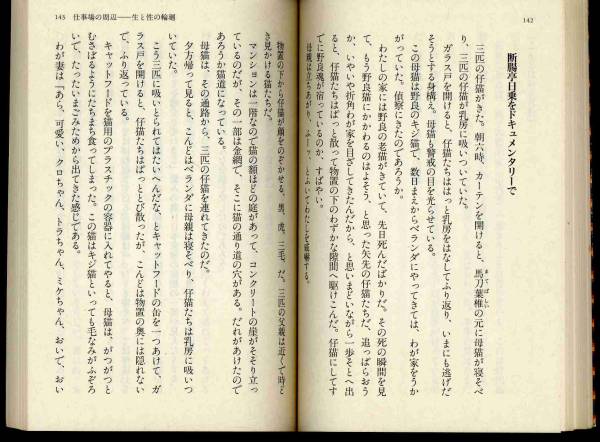 142
断腸亭日乗をドキュメンタリーで
三匹の仔猫がきた。朝六時、カーテンを開けると、馬刀葉椎の元に母猫が寝そべ
り、三匹の仔猫が乳房に吸いついていた。
ガラス戸を開けると、仔猫たちははっと乳房をはなしてふり返り、いまにも逃げだ
そうとする身構え。母猫も警戒の目を光らせている。
この母猫は野良のキジ猫で、数日まえからベランダにやってきては、わが家をうか
がっていた。偵察にきたのであろうか。
わたしの家には野良の老猫がきていて、先日死んだばかりだ。その死の瞬間を見
て、もう野良猫にかかわるのはよそう、と思った矢先の仔猫たちだ。追っぱらおう
か、いやいや街角わが家を目ざしてきたんだから、と思いまどいながら一歩そとへ出
ると、仔猫たちはぱっと散って物置の下のわずかな隙間へ駆けこんだ。仔猫にしてす
でに野良魂が宿っているのか、すばやい。
母親は立ちあがり、ふーッ、とふいてわたしを威嚇する。
143 仕事場の周辺――生と性の輪廻
物置の下から仔猫が顔をのぞかせる。黒、虎、三毛、だ。三匹の父親は近くで時ど
き見かける猫たちだ。
マンションは一階なので猫の額ほどの庭があって、コンクリートの崖がそそり立っ
ているのだが、その一部は金網で、そこに猫の通り道の穴がある。だれがあけたので
あろうか猫道になっている。
母猫は、その通路から、三匹の仔猫を連れてきたのだ。
夕方帰って見ると、こんどはベランダに母親は寝そべり、仔猫たちは乳房に吸いつ
いていた。
こう三匹に吸いとられてはたいへんだな、とキャットフードの缶を一つあけて、ガ
ラス戸を開けると、仔猫たちはぱっととび散ったが、こんどは物置の奥には隠れない
で、ふり返っている。
キャットフードを猫用のプラスチックの容器に入れてやると、母猫は、がつがつと
むさぼるようにたちまち食ってしまった。この猫はキジ猫といっても毛なみがふぞろ
いで、たったいまごみためから出てきた感じである。
わが妻は「あら、可愛い、クロちゃん、トラちゃん、ミケちゃん、おいで、おい